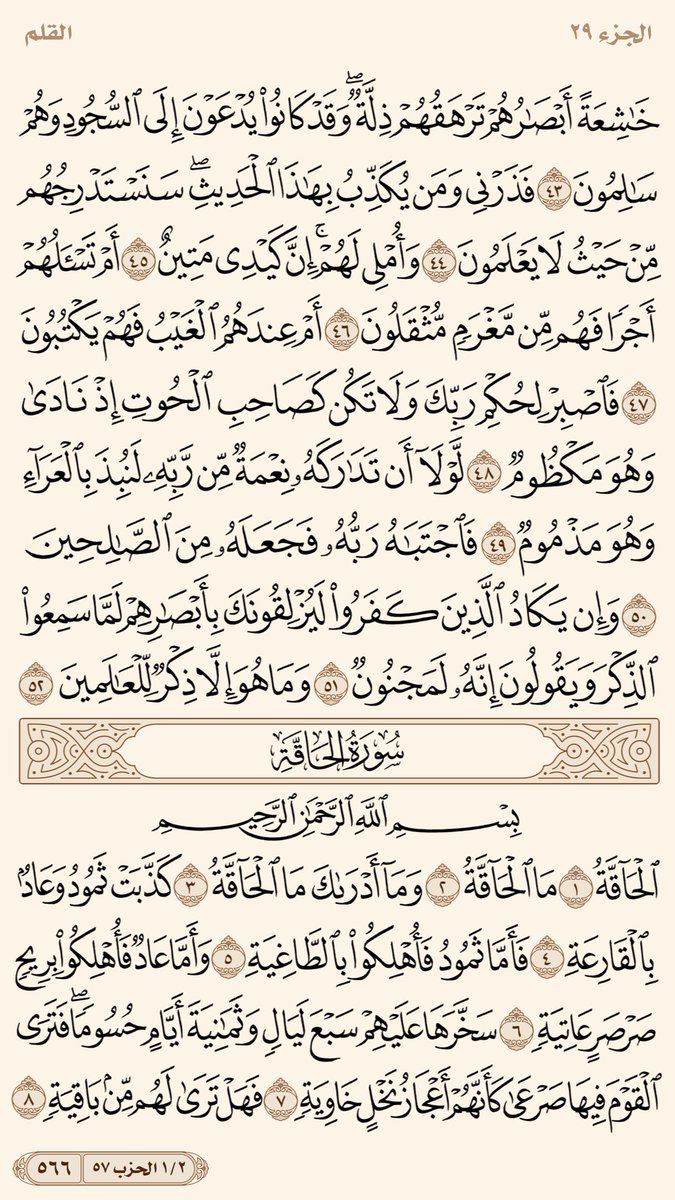 الجزء ٢٩
القلم
خَٰشِعَةً أَبْصَٰرُهُمْ تَرْهَقُهُمْ ذِلَّةٌۖ وَقَدْ كَانُوا۟ يُدْعَوْنَ إِلَى ٱلسُّجُودِ وَهُمْ
سَٰلِمُونَ ٤٣ فَذَرْنِى وَمَن يُكَذِّبُ بِهَٰذَا ٱلْحَدِيثِۖ سَنَسْتَدْرِجُهُم
مِّنْ حَيْثُ لَا يَعْلَمُونَ ٤٤ وَأُمْلِى لَهُمْۚ إِنَّ كَيْدِى مَتِينٌ ٤٥ أَمْ تَسْـَٔلُهُمْ
أَجْرًا فَهُم مِّن مَّغْرَمٍ مُّثْقَلُونَ ٤٦ أَمْ عِندَهُمُ ٱلْغَيْبُ فَهُمْ يَكْتُبُونَ
٤٧ فَٱصْبِرْ لِحُكْمِ رَبِّكَ وَلَا تَكُن كَصَاحِبِ ٱلْحُوتِ إِذْ نَادَىٰ
وَهُوَ مَكْظُومٌ ٤٨ لَّوْلَآ أَن تَدَٰرَكَهُۥ نِعْمَةٌ مِّن رَّبِّهِۦ لَنُبِذَ بِٱلْعَرَآءِ
وَهُوَ مَذْمُومٌ ٤٩ فَٱجْتَبَٰهُ رَبُّهُۥ فَجَعَلَهُۥ مِنَ ٱلصَّٰلِحِينَ
٥٠ وَإِن يَكَادُ ٱلَّذِينَ كَفَرُوا۟ لَيُزْلِقُونَكَ بِأَبْصَٰرِهِمْ لَمَّا سَمِعُوا۟
ٱلذِّكْرَ وَيَقُولُونَ إِنَّهُۥ لَمَجْنُونٌ ٥١ وَمَا هُوَ إِلَّا ذِكْرٌ لِّلْعَٰلَمِينَ ٥٢
سُورَةُ الحَاقَّةِ
بِسْمِ ٱللَّهِ ٱلرَّحْمَٰنِ ٱلرَّحِيمِ
ٱلْحَآقَّةُ ١ مَا ٱلْحَآقَّةُ ٢ وَمَآ أَدْرَىٰكَ مَا ٱلْحَآقَّةُ ٣ كَذَّبَتْ ثَمُودُ وَعَادٌۢ
بِٱلْقَارِعَةِ ٤ فَأَمَّا ثَمُودُ فَأُهْلِكُوا۟ بِٱلطَّاغِيَةِ ٥ وَأَمَّا عَادٌ فَأُهْلِكُوا۟ بِرِيحٍ
صَرْصَرٍ عَاتِيَةٍ ٦ سَخَّرَهَا عَلَيْهِمْ سَبْعَ لَيَالٍ وَثَمَٰنِيَةَ أَيَّامٍ حُسُومًاۖ فَتَرَى
ٱلْقَوْمَ فِيهَا صَرْعَىٰ كَأَنَّهُمْ أَعْجَازُ نَخْلٍ خَاوِيَةٍ ٧ فَهَلْ تَرَىٰ لَهُم مِّنۢ بَاقِيَةٍ ٨
١/٢ الحزب ٥٧
٥٦٦